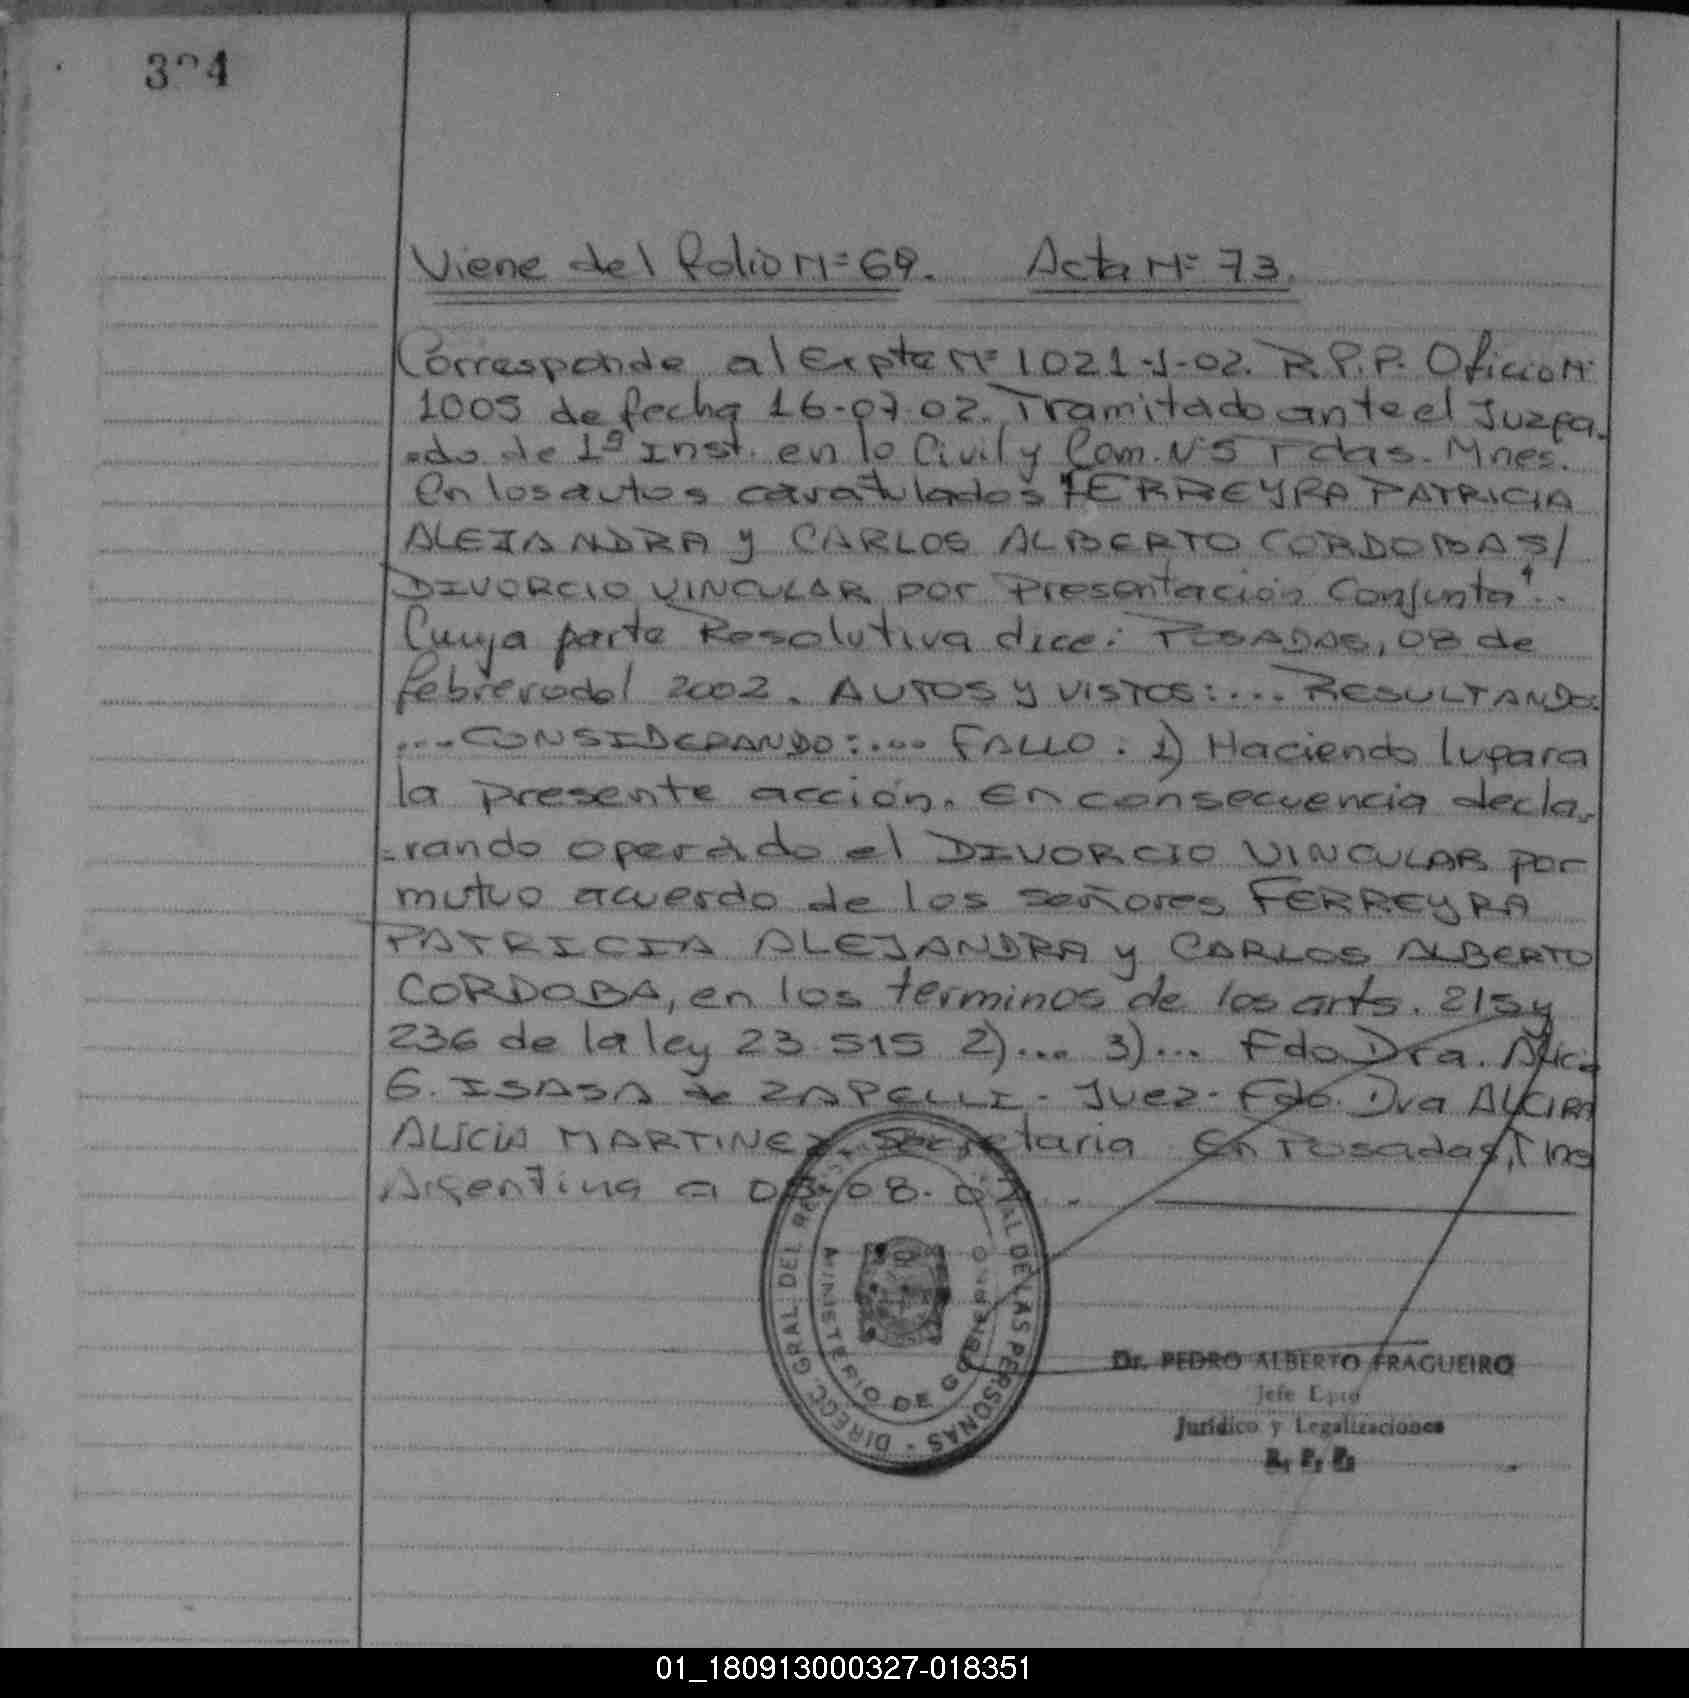 334
Viene del folio Nº 69. Acta Nº 73.
Corresponde al Expte Nº 1021-J-02. R.P.P. Oficio Nº
1005 de fecha 16-07-02. Tramitado ante el Juzga-
-do de 1ª Inst. en lo Civil y Com. Nº5 Pdas. Mnes.
en los autos caratulados "FERREYRA PATRICIA
ALEJANDRA y CARLOS ALBERTO CORDOBA S/
DIVORCIO VINCULAR por Presentación Conjunta".
Cuya parte Resolutiva dice: POSADAS, 08 de
febrero del 2002. AUTOS y VISTOS:... RESULTANDO:
....CONSIDERANDO:.... FALLO: 1) Haciendo lugar a
la presente acción. En consecuencia decla-
-rando operado el DIVORCIO VINCULAR por
mutuo acuerdo de los señores FERREYRA
PATRICIA ALEJANDRA y CARLOS ALBERTO
CORDOBA, en los terminos de los arts. 215 y
236 de la ley 23.515 2)... 3)... Fdo Dra. Alicia
G. ISASA de ZAPELLI - Juez - Fdo. Dra ALCIRA
ALICIA MARTINEZ Secretaria En Posadas, Mnes
Argentina a 08-08-02.
DIRECC. GRAL. DEL DE LAS PERSONAS
MINISTERIO DE GOBIERNO
Dr. PEDRO ALBERTO FRAGUEIRO
Jefe Dpto
Jurídico y Legalizaciones
R. P. P.
01_180913000327-018351